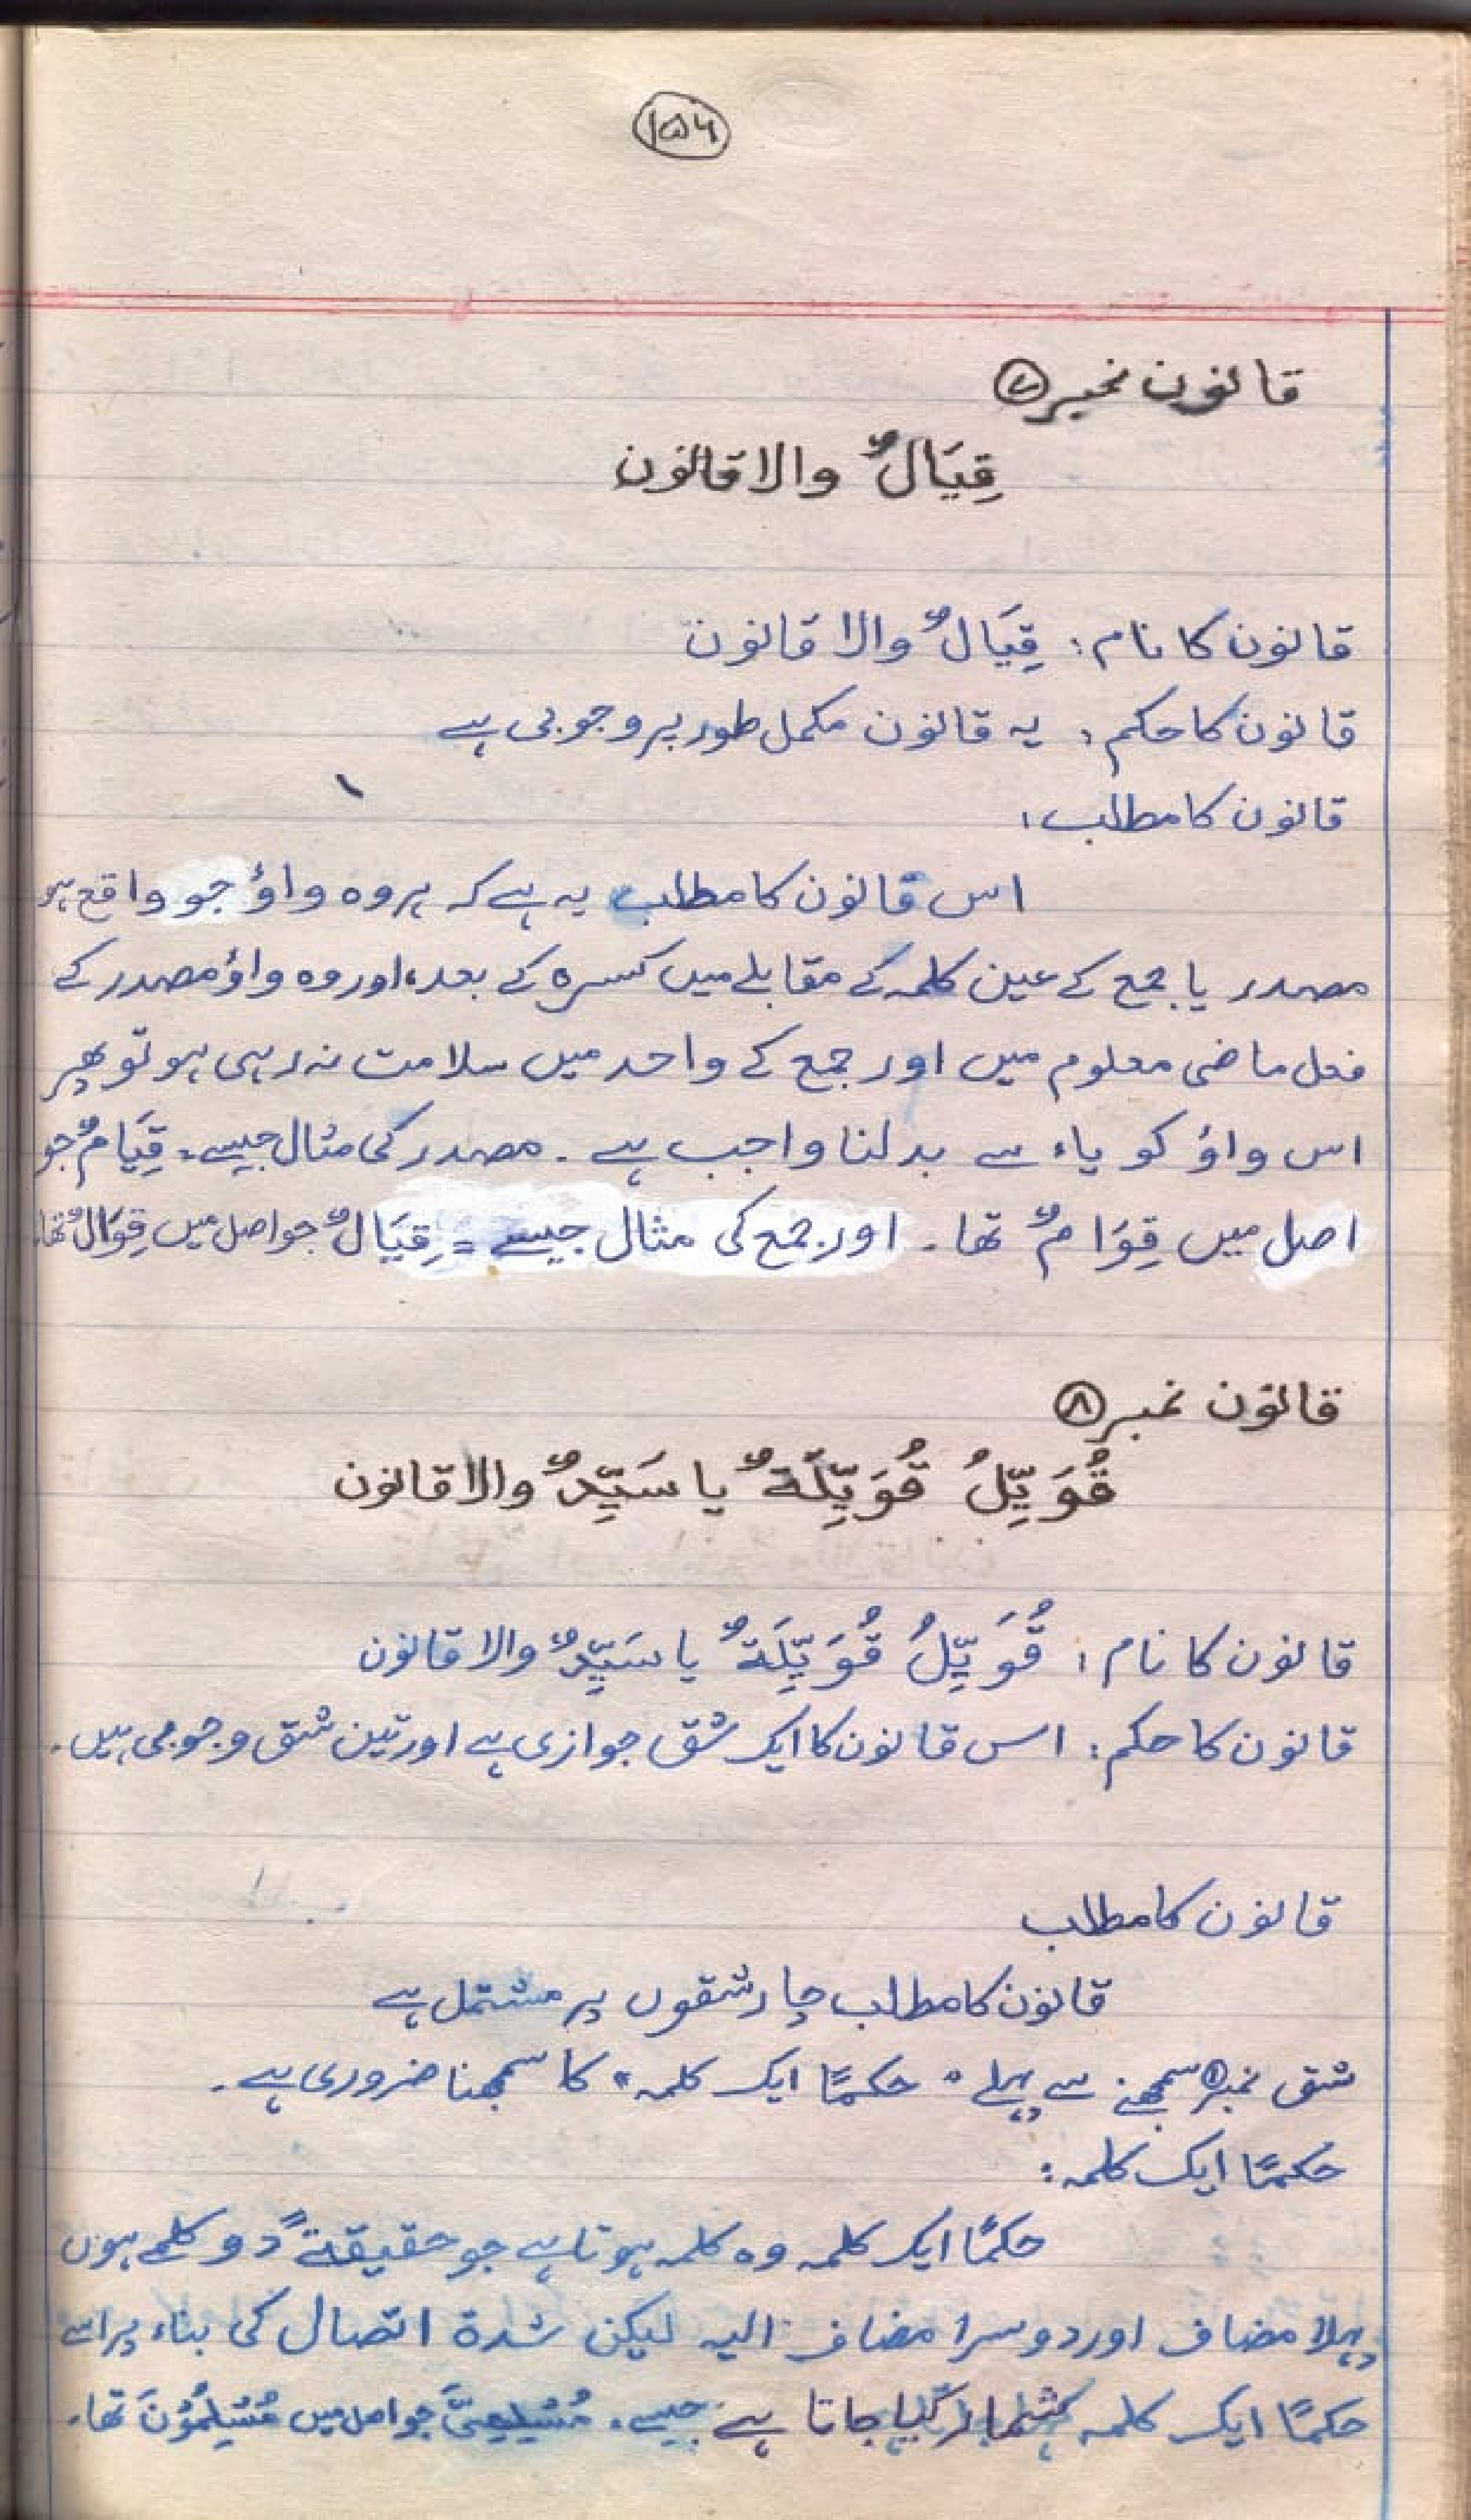 ۱۵۶
قانون نمبر ۷
قِیَالٌ والا قانون
قانون کا نام: قِیَالٌ والا قانون
قانون کا حکم: یہ قانون مکمل طور پر وجوبی ہے
قانون کا مطلب:
اس قانون کا مطلب یہ ہے کہ ہر وہ واؤ جو واقع ہو
مصدر یا جمع کے عین کلمہ کے مقابلے میں کسرہ کے بعد، اور وہ واؤ مصدر کے
فعل ماضی معلوم میں اور جمع کے واحد میں سلامت نہ رہی ہو تو پھر
اس واؤ کو یاء سے بدلنا واجب ہے۔ مصدر کی مثال جیسے۔ قِیَامٌ جو
اصل میں قِوَامٌ تھا۔ اور جمع کی مثال جیسے = قِیَالٌ جو اصل میں قِوَالٌ تھا۔
قانون نمبر ۸
قُوَیِّلٌ قُوَیِّلَةٌ یا سَیِّدٌ والا قانون
قانون کا نام: قُوَیِّلٌ قُوَیِّلَةٌ یا سَیِّدٌ والا قانون
قانون کا حکم: اس قانون کا ایک شق جوازی ہے اور تین شق وجوبی ہیں۔
قانون کا مطلب
قانون کا مطلب چار شقوں پر مشتمل ہے
شق نمبر ۱ سمجھنے سے پہلے "حکمًا ایک کلمہ" کا سمجھنا ضروری ہے۔
حکمًا ایک کلمہ:
حکمًا ایک کلمہ وہ کلمہ ہوتا ہے جو حقیقةً دو کلمے ہوں
پہلا مضاف اور دوسرا مضاف الیہ لیکن شدة اتصال کی بناء پر اسے
حکمًا ایک کلمہ شمار کیا جاتا ہے جیسے۔ مُسْلِمِیَّ جو اصل میں مُسْلِمُوْنَ تھا۔